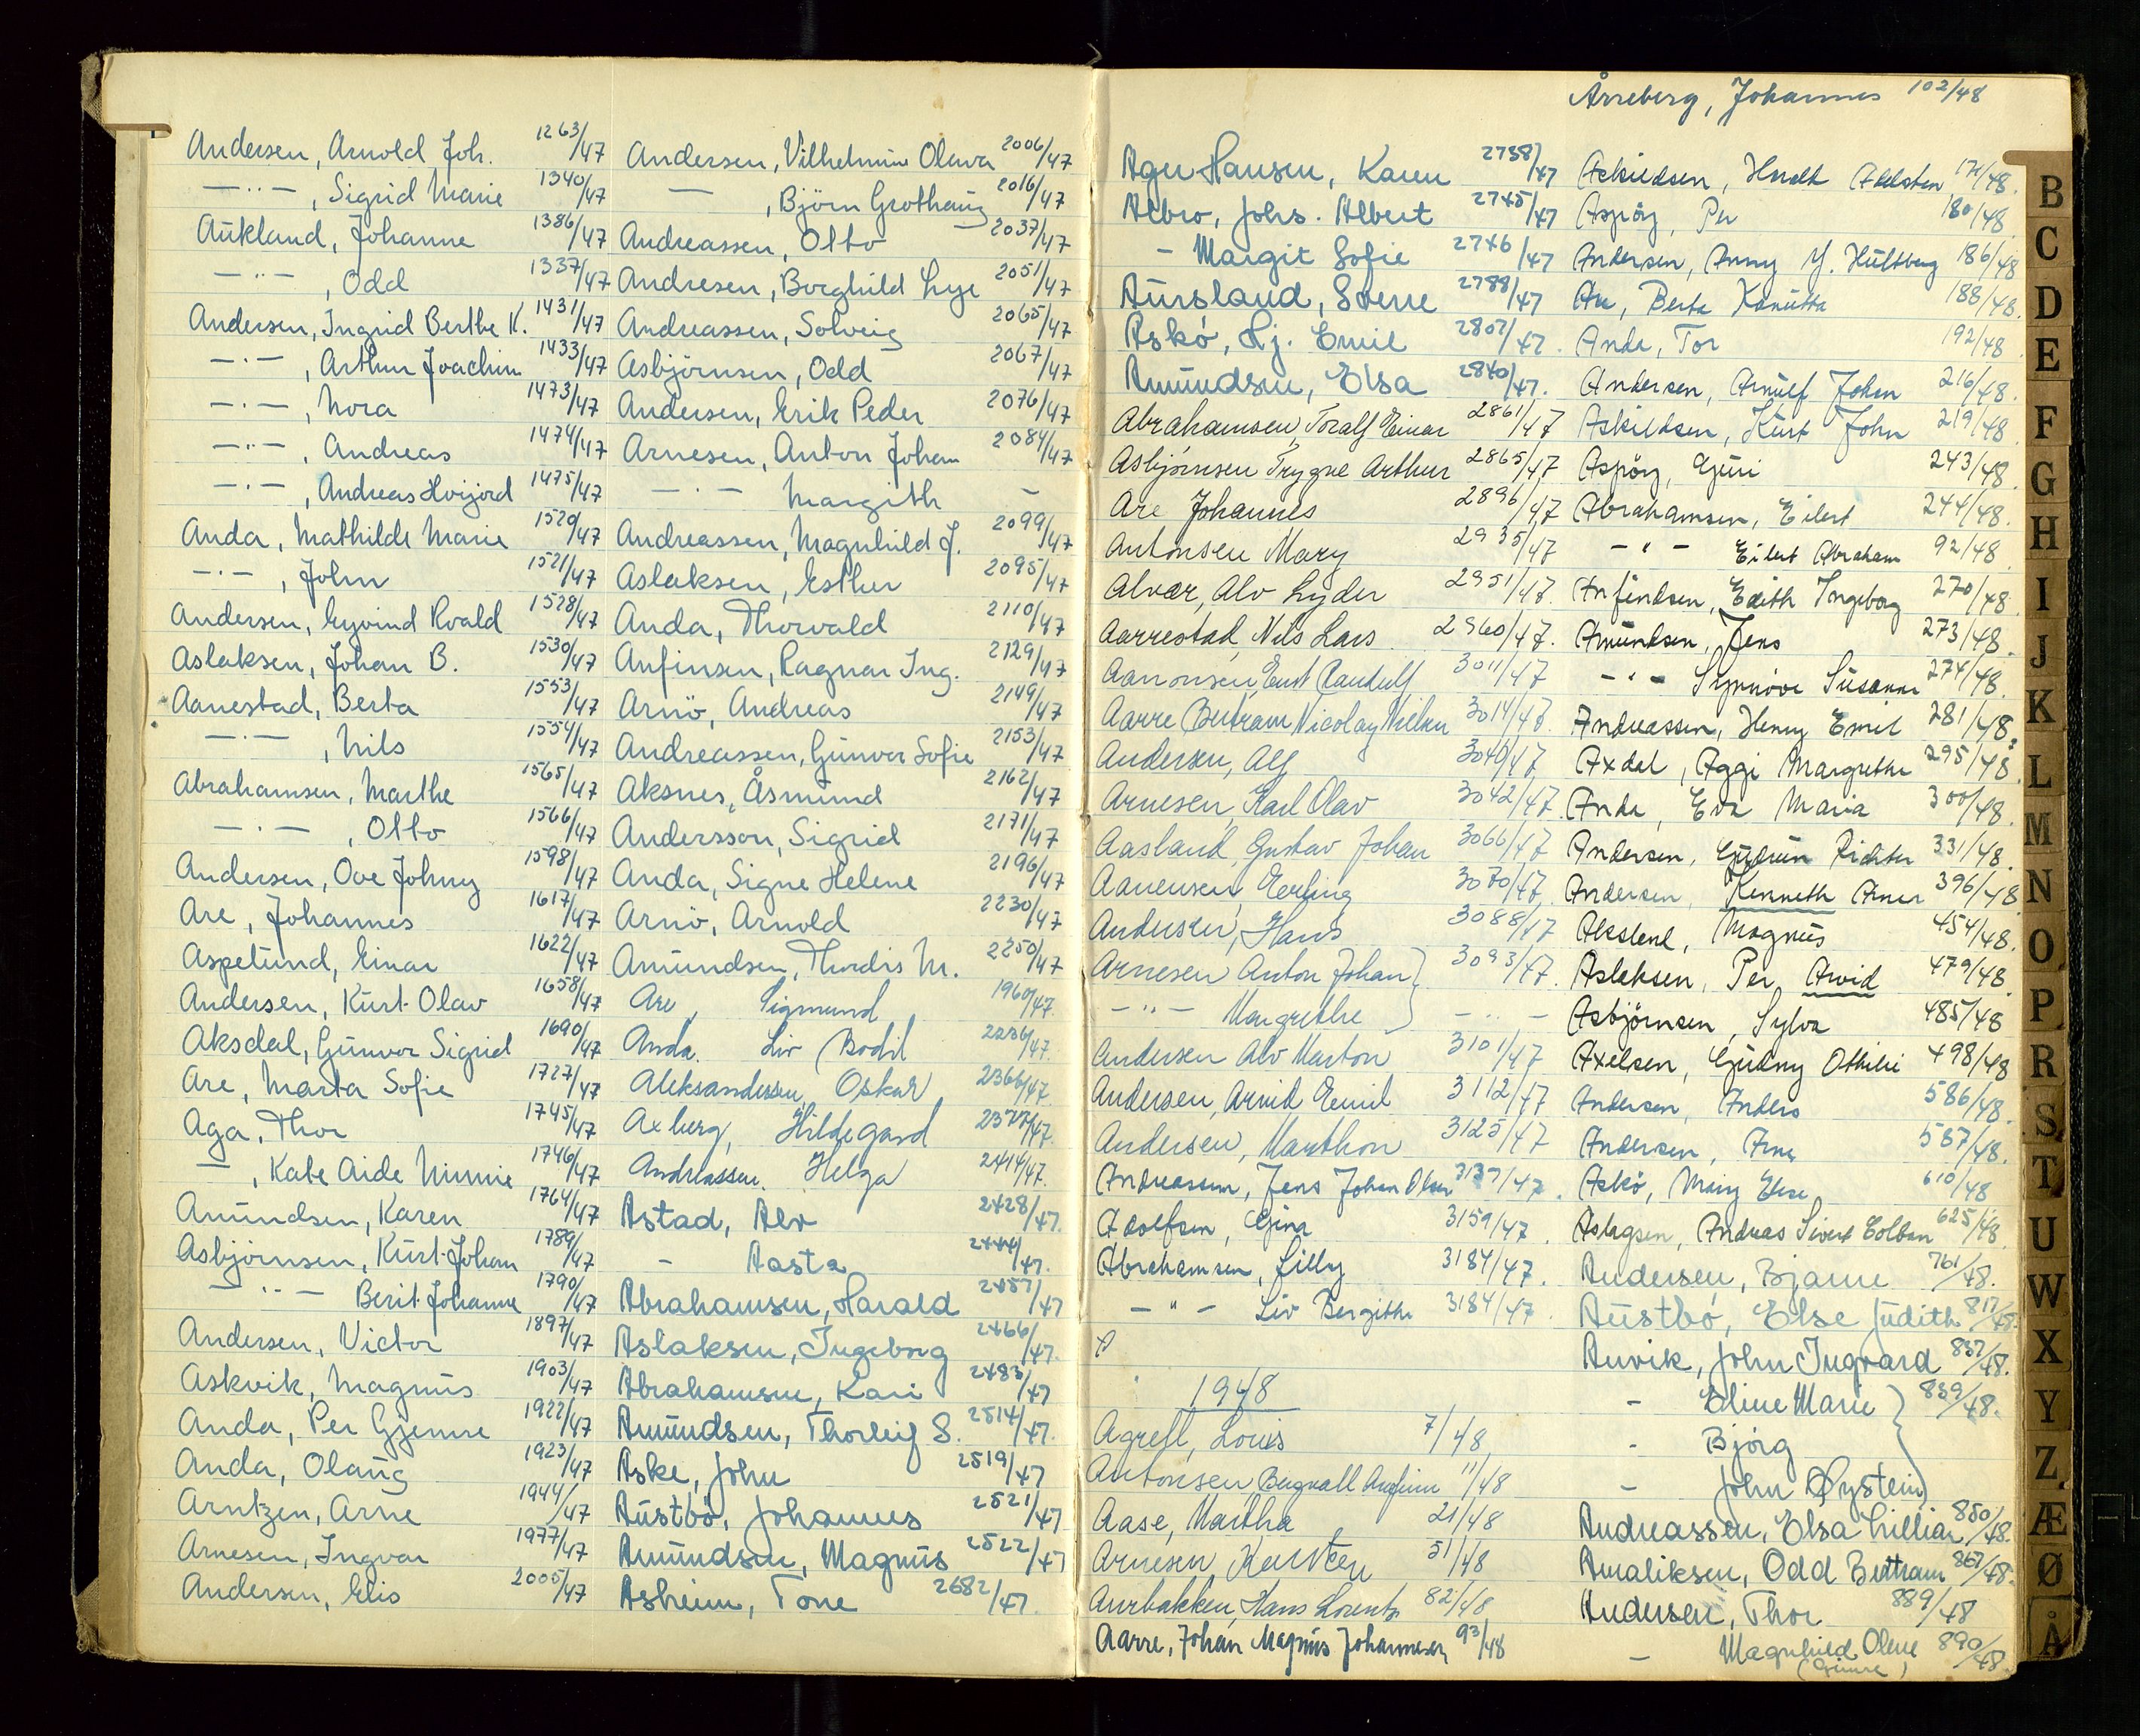 Andersen, Arnold Joh. 1263/47
—"— , Sigrid Marie 1340/47
Aukland, Johanne 1386/47
—"— , Odd 1337/47
Andersen, Ingrid Berthe K. 1431/47
—"— , Arthur Joachim 1433/47
—"— , Nora 1473/47
—"— , Andreas 1474/47
—"— , Andreas 1475/47
Anda, Mathilde Marie 1520/47
—"— , John 1521/47
Andersen, Eyvind Roald 1528/47
Aslaksen, Johan B. 1530/47
Aanestad, Berta 1553/47
—"— , Nils 1554/47
Abrahamsen, Marthe 1565/47
—"— , Otto 1566/47
Andersen, Ove Johny 1598/47
Are, Johannes 1617/47
Aspelund, Einar 1622/47
Andersen, Kurt Olav 1658/47
Aksdal, Gunvor Sigrid 1690/47
Are, Marta Sofie 1727/47
Aga, Thor 1745/47
— , Kate Aide Minnie 1746/47
Amundsen, Karen 1764/47
Asbjörnsen, Kurt Johan 1789/47
—"— Berit Johanne 1790/47
Andersen, Victor 1897/47
Askvik, Magnus 1903/47
Anda, Per Gjemre 1922/47
Anda, Olaug 1923/47
Arntzen, Arne 1944/47
Arnesen, Ingvar 1977/47
Andersen, Elis 2005/47
Andersen, Vilhelmine Olava 2006/47
— , Björn Grothaug 2016/47
Andreassen, Otto 2037/47
Andresen, Borghild Lye 2051/47
Andreassen, Solveig 2065/47
Asbjörnsen, Odd 2067/47
Andersen, Erik Peder 2076/47
Arnesen, Anton Johan 2084/47
—"— Margith —
Andreassen, Magnhild J. 2099/47
Aslaksen, Esther 2095/47
Anda, Thorvald 2110/47
Anfinsen, Ragnar Ing. 2129/47
Arnö, Andreas 2149/47
Andreassen, Gunvor Sofie 2153/47
Aksnes, Åsmund 2162/47
Andersson, Sigrid 2171/47
Anda, Signe Helene 2196/47
Arnö, Arnold 2230/47
Amundsen, Thordis M. 2250/47
Are, Sigmund 1960/47
Anda. Liv Bodil 2236/47
Aleksandersen, Oskar 2366/47
Axberg, Hildegard /47
Andreassen. Helga 2414/47
Astad, Alv 2428/47
— Aasta 2444/47
Abrahamsen, Harald 2457/47
Aslaksen, Ingeborg 2466/47
Abrahamsen, Kari 2483/47
Amundsen, Thorleif S. 2514/47
Aske, John 2519/47
Austbö, Johannes 2521/47
Amundsen, Magnus 2522/47
Asheim, Tone 2682/47
Ager Hansen, Karen 2738/47
Albro, Johs. Albert 2745/47
— Margit Sofie 2746/47
Aursland, Sverre 2788/47
Askö, Lj. Emil 2807/47
Amundsen, Elsa 2840/47
Abrahamsen, Toralf Einar 2861/47
Asbjörnsen Trygve Arthur 2865/47
Are Johannes 2896/47
Antonsen Mary 2935/47
Alvær, Alv Lyder 2951/47
Aarrestad, Nils Lars 2960/47
Aanonsen, Randulf 3011/47
Aarre Bertram Nicolay Nielsen 3014/47
Andersen, Alf 3040/47
Arnesen, Karl Olav 3042/47
Aasland, Gustav Johan 3066/47
Aanensen, Erling 3070/47
Andersen, Hans 3088/47
Arnesen Anton Johan } 3093/47
—"— Margrethe } —"—
Andersen Alv Marton 3101/47
Andersen, Arvid Emil 3112/47
Andersen, Marthon 3125/47
Andreassen, Jens Johan Olsen 3137/47
Adolfsen, Gina 3159/47
Abrahamsen, Lilly 3184/47
—"— Liv Bergithe 3184/47
A
1948
Agrell, Louis 7/48
Antonsen, Bergvall Anfinn 11/48
Aase, Martha 21/48
Arnesen Karsten 51/48
Aurbakken, Hans Lorentz 82/48
Aarre, Johan Magnus Johannesen 93/48
Årreberg, Johannes 102/48
Askildsen, Adelsten 171/48
Aspöy, Per 180/48
Andersen, Anny Y. Hultberg 186/48
Are, Berta Kanutta 188/48
Anda, Tor 192/48
Andersen, Arnulf Johan 216/48
Askildsen, Kurt John 219/48
Aspöy, Guri 243/48
Abrahamsen, Eilert 244/48
—"— Eilert Abraham 92/48
Anfindsen, Edith Ingeborg 270/48
Amundsen, Jens 273/48
—"— Synnöve Susanne 274/48
Andreassen, Henny Emil 281/48
Axdal, Aggi Margrethe 295/48
Anda, Eva Maria 300/48
Andersen, Gudrun Richter 331/48
Andersen, Kenneth Arner 396/48
Aksdal, Magnus 454/48
Aslaksen, Per Arvid 479/48
Asbjörnsen, Sylva 485/48
Axelsen, Gudny Othilie 498/48
Andersen, Anders 586/48
Andersen, Arne 587/48
Askö, Mary Else 610/48
Aslagsen, Andreas Sivert Eolban 625/48
Andersen, Bjarne 761/48
Austbö, Else Judith 817/48
Anvik, John Ingvard 837/48
— Eline Marie } 839/48
— Bjørg
— John Øystein
Andreassen, Elsa Lillian 850/48
Amaliksen, Odd Bertram 867/48
Andersen, Thor 889/48
— Magnhild Olene 890/48
B
C
D
E
F
G
H
I
J
K
L
M
N
O
P
R
S
T
U
W
X
Y
Z
Æ
Ø
Å